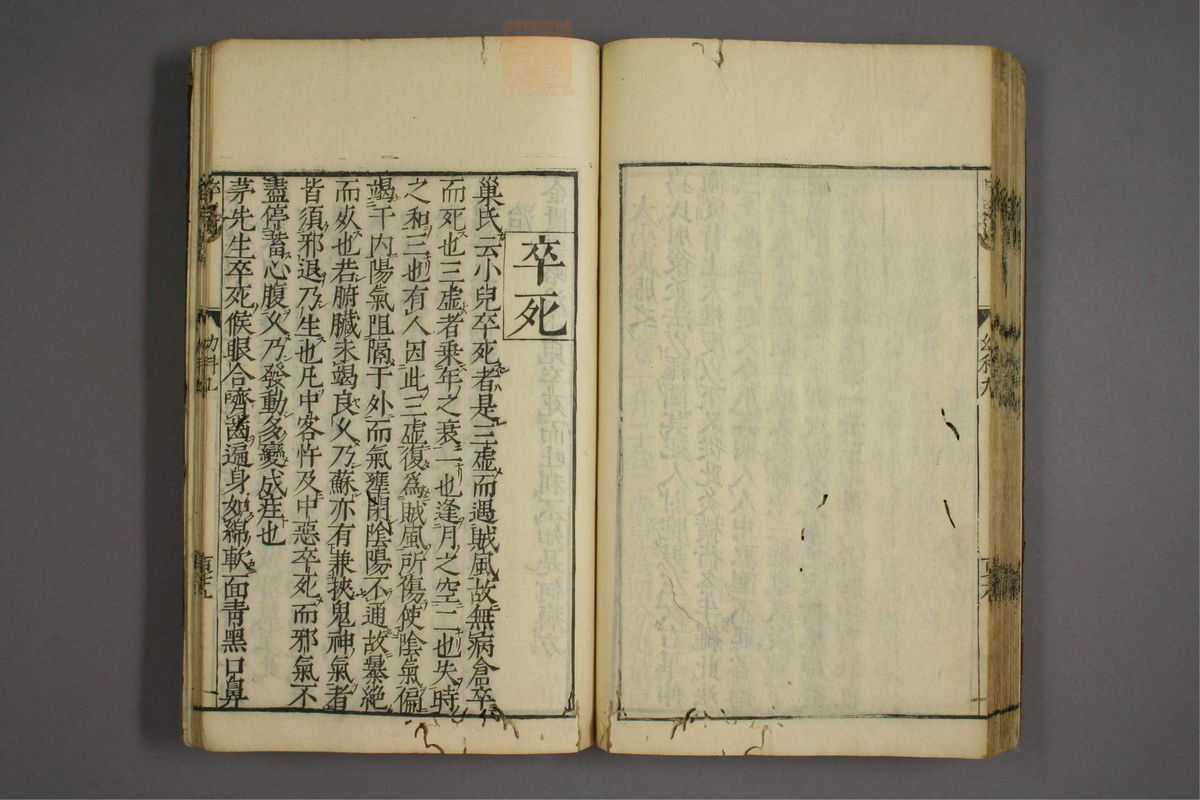 卒死
巢氏云小兒卒死者是三虛而遇賊風故無病倉卒
而死也三虛者乘年之衰一也逢月之空二也失時
之和三也有人因此三虛復爲賊風所傷使陰氣偏
竭于內陽氣阻隔于外而氣壅閉陰陽不通故暴絕
而死也若腑臟未竭良久乃蘇亦有兼挾鬼神氣者
皆須邪退乃生也凡中客忤及中惡卒死而邪氣不
盡停蓄心腹久乃發動多變成疰也
茅先生卒死候眼合嚌齒遍身如綿軟面青黑口鼻
幼科九